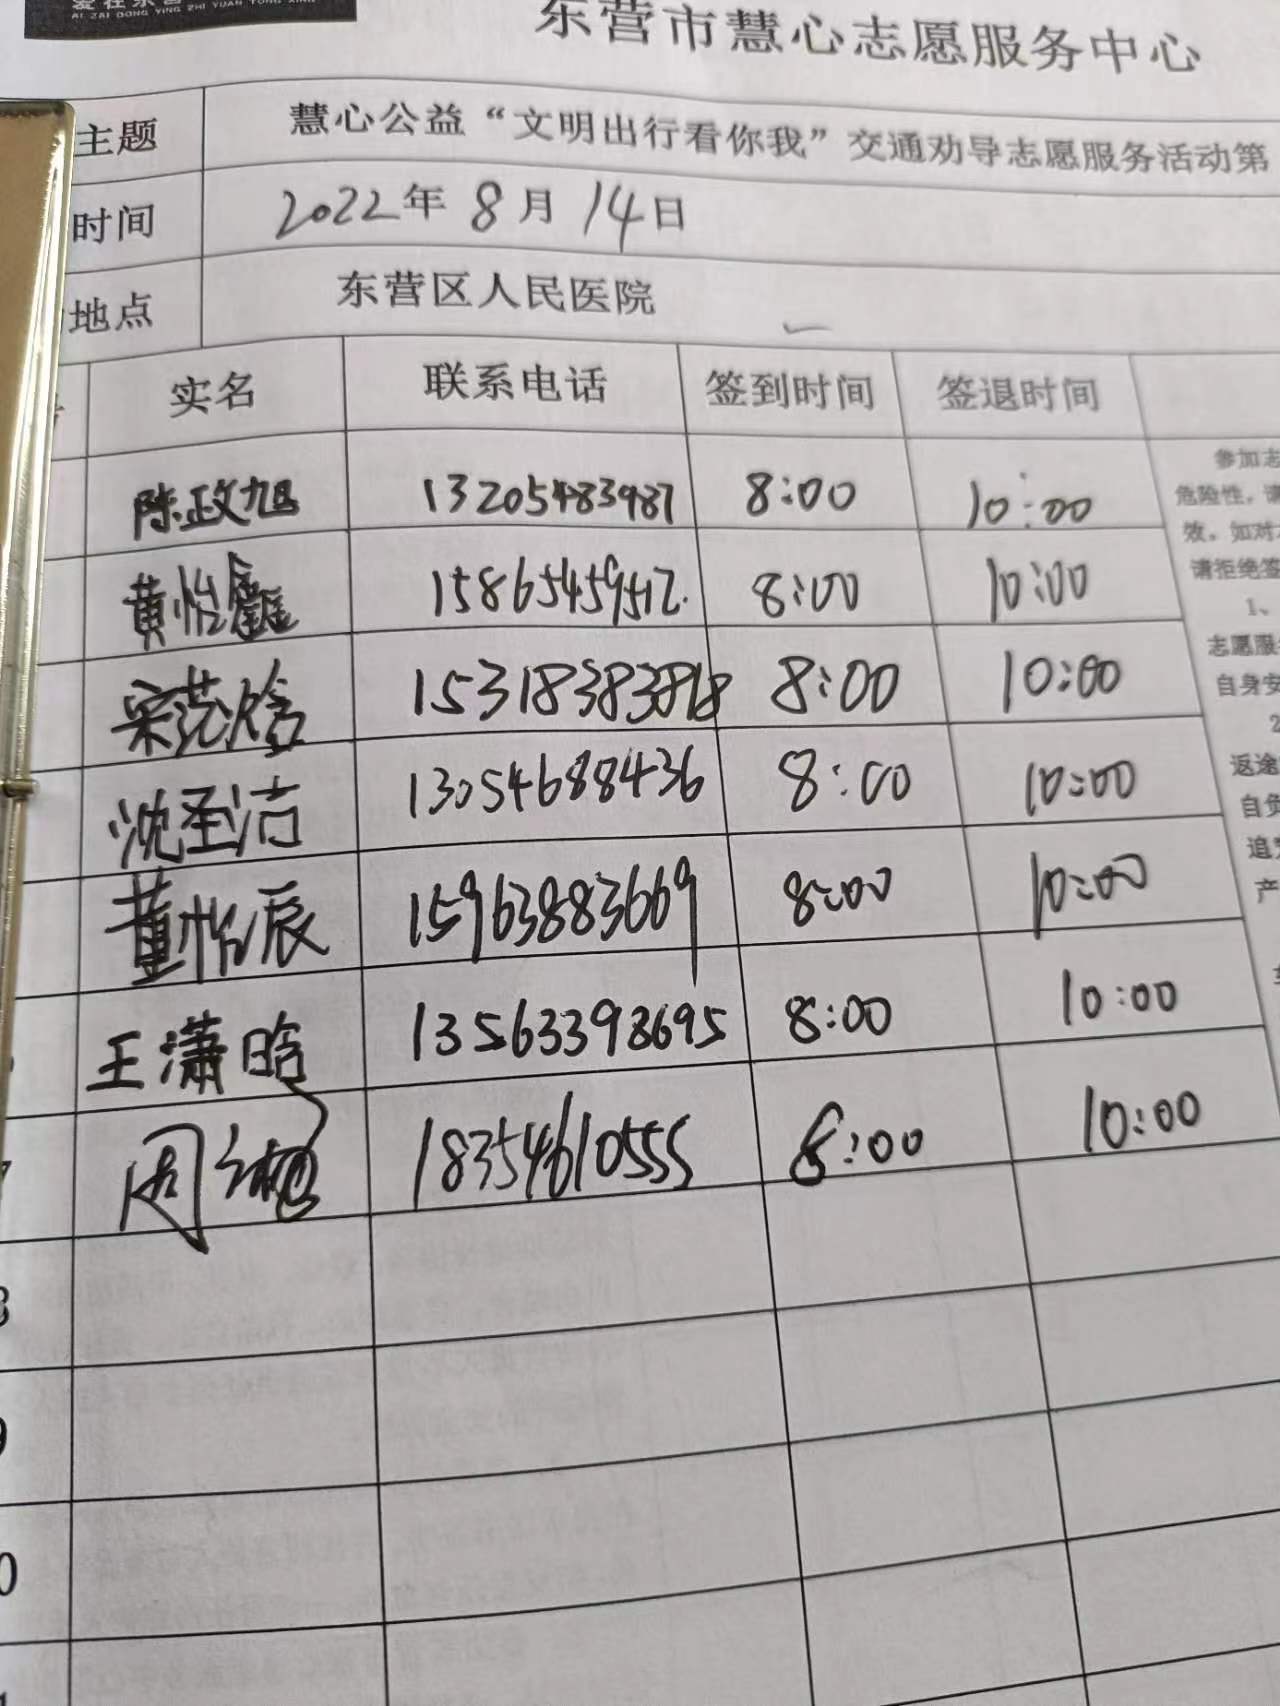 AI ZAI DONG YING ZHI YUAN TONG XING
东营市慧心志愿服务中心
主题 慧心公益“文明出行看你我”交通劝导志愿服务活动第
时间 2022年 8月 14日
地点 东营区人民医院
实名 联系电话 签到时间 签退时间
陈政旭 13205483987 8:00 10:00
黄怡鑫 15865459512. 8:00 10:00
宋范焓 8:00 10:00
沈圣洁 13054688436 8:00 10:00
董怡辰 15963883669 8:00 10:00
王潇晗 13563398695 8:00 10:00
周 18354610555 8:00 10:00
参加志
危险性，请
效。如对
请拒绝签
1、
志愿服
自身安
2
返途
自负
追究
产
8
9
0